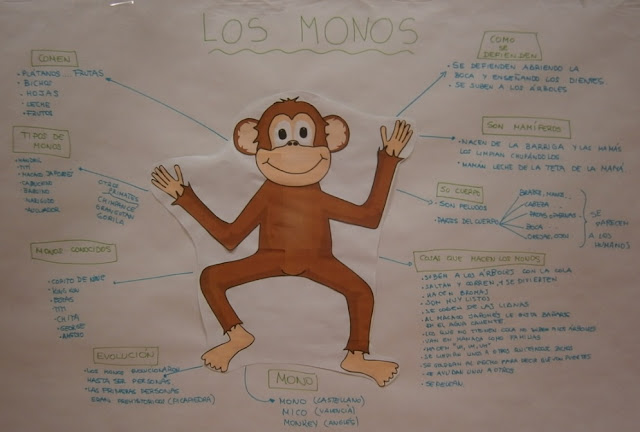 LOS MONOS
COMEN
· PLÁTANOS FRUTAS
· BICHOS
· HOJAS
· FRUTOS
TIPOS DE
MONOS
· TITI
· MACACO JAPONÉS
· CAPUCHINO
· BABUINO
· NARIGUDO
· AULLADOR
OTROS
PRIMATES
CHIMPANCÉ
ORANGUTÁN
GORILA
MONOS CONOCIDOS
· COPITO DE NIEVE
· KING KONG
· TITI
· CHITA
· GEORGE
EVOLUCIÓN
· LOS MONOS EVOLUCIONARON
HASTA SER PERSONAS
· LAS PRIMERAS PERSONAS
ERAN PREHISTÓRICAS
MONO
MONO (CASTELLANO)
MICO (VALENCIÀ)
MONKEY (INGLÉS)
COMO
SE
DEFIENDEN
· SE DEFIENDEN ABRIENDO LA
BOCA Y ENSEÑANDO LOS DIENTES
· SE SUBEN A LOS ÁRBOLES
SON MAMÍFEROS
· NACEN DE LA BARRIGA Y LAS MAMÁS
LOS LIMPIAN CHUPÁNDOLOS
· MAMAN LECHE DE LA TETA DE LA MAMÁ
SU CUERPO
· SON PELUDOS
· PARTES DEL CUERPO
CABEZA
BOCA
SE
PARECEN
A LOS
HUMANOS
COSAS QUE HACEN LOS MONOS
· SUBEN A LOS ÁRBOLES CON LA COLA
· SALTAN Y CORREN, Y SE DIVIERTEN
· HACEN BROMAS
· SON MUY LISTOS
· SE COGEN DE LAS LIANAS
· AL MACACO JAPONÉS LE GUSTA BAÑARSE
EN EL AGUA CALIENTE
· LOS QUE NO TIENEN COLA NO SUBEN A LOS ÁRBOLES
· VAN EN MANADA COMO FAMILIAS
· HACEN "UH, UH, UH"
· SE LIMPIAN UNOS A OTROS QUITÁNDOSE BICHOS
· SE AYUDAN UNOS A OTROS
· SE PELEAN